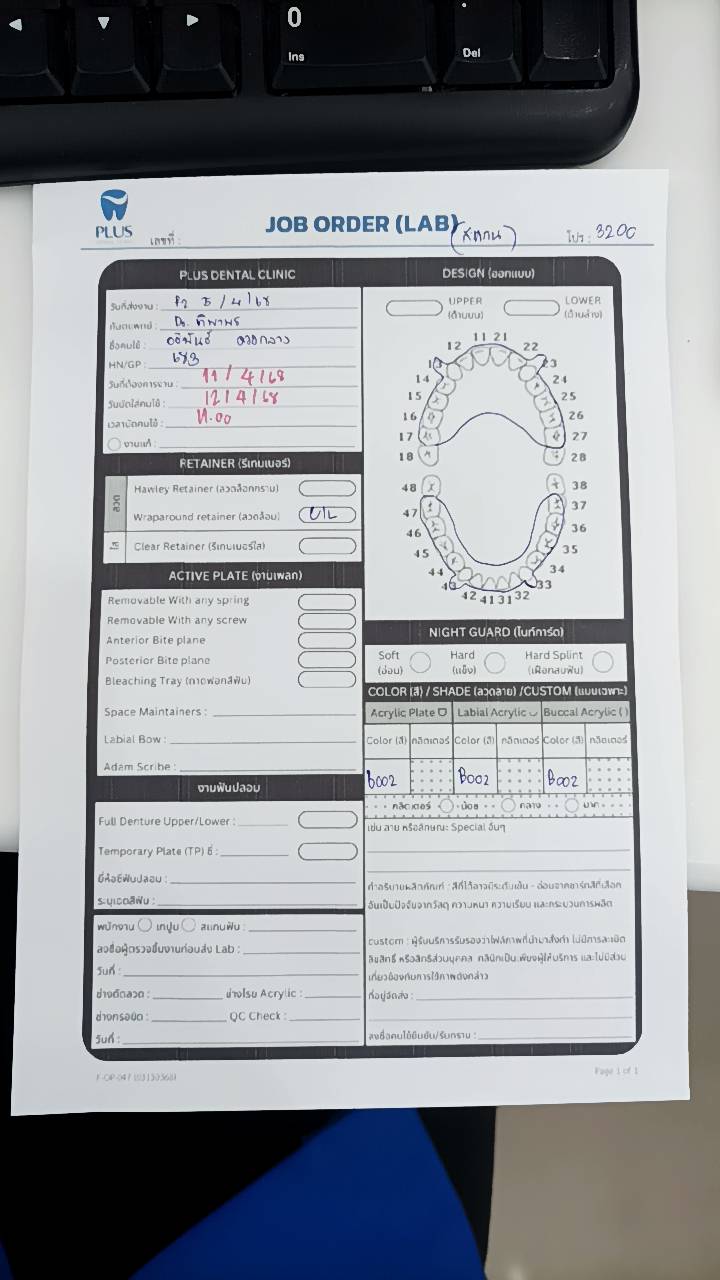 0
Ins
Del
PLUS
เลขที่ :
JOB ORDER (LAB)
(สแกน)
โปร : 3200
PLUS DENTAL CLINIC
วันที่ส่งงาน : P2 5/4/68
ทันตแพทย์ : Dr. ทิพาพร
ชื่อคนไข้ :
HN/GP : 683
วันที่ต้องการงาน : 11/4/68
วันนัดใส่คนไข้ : 12/4/68
เวลานัดคนไข้ : 11.00
งานแก้ :
RETAINER (รีเทนเนอร์)
ลวด
Hawley Retainer (ลวดล็อกกราม)
Wraparound retainer (ลวดล้อม) U/L
ใส
Clear Retainer (รีเทนเนอร์ใส)
ACTIVE PLATE (งานเพลท)
Removable With any spring
Removable With any screw
Anterior Bite plane
Posterior Bite plane
Bleaching Tray (ถาดฟอกสีฟัน)
Space Maintainers :
Labial Bow :
Adam Scribe :
งานฟันปลอม
Full Denture Upper/Lower :
Temporary Plate (TP) ซี่ :
ยี่ห้อซี่ฟันปลอม :
ระบุเฉดสีฟัน :
พนักงาน เทปูน สแกนฟัน :
ลงชื่อผู้ตรวจชิ้นงานก่อนส่ง Lab :
วันที่ :
ช่างดัดลวด : ช่างโรย Acrylic :
ช่างกรอขัด : QC Check :
วันที่ :
DESIGN (ออกแบบ)
UPPER
(ด้านบน)
LOWER
(ด้านล่าง)
11 21
12 22
13 23
14 24
15 25
16 26
17 27
18 28
48 38
47 37
46 36
45 35
44 34
43 33
42 41 31 32
NIGHT GUARD (ไนท์การ์ด)
Soft
(อ่อน)
Hard
(แข็ง)
Hard Splint
(เฝือกสบฟัน)
COLOR (สี) / SHADE (ลวดลาย) /CUSTOM (แบบเฉพาะ)
Acrylic Plate Labial Acrylic Buccal Acrylic ( )
Color (สี) กลิตเตอร์ Color (สี) กลิตเตอร์ Color (สี) กลิตเตอร์
B002 B002 B002
กลิตเตอร์ น้อย กลาง มาก
เช่น ลาย หรือลักษณะ Special อื่นๆ
คำอธิบายผลิตภัณฑ์ : สีที่ได้อาจมีระดับเข้ม - อ่อนจากชาร์ทสีที่เลือก
อันเป็นปัจจัยจากวัสดุ ความหนา ความเรียบ และกระบวนการผลิต
custom : ผู้รับบริการรับรองว่าไฟล์ภาพที่นำมาสั่งทำ ไม่มีการละเมิด
ลิขสิทธิ์ หรือสิทธิส่วนบุคคล คลินิกเป็นเพียงผู้ให้บริการ และไม่มีส่วน
เกี่ยวข้องกับการใช้ภาพดังกล่าว
ที่อยู่จัดส่ง :
ลงชื่อคนไข้ยืนยัน/รับทราบ :
Page 1 of 1